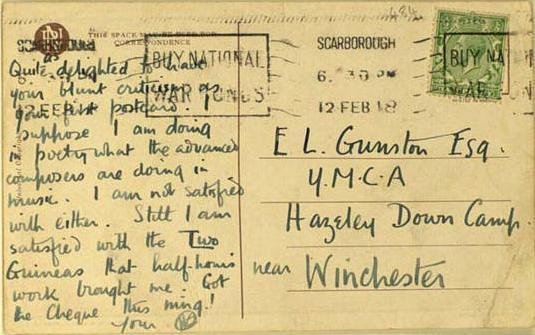 THIS SPACE MAY BE USED FOR
CORRESPONDENCE
SCARBOROUGH
12 FEB 18
BUY NATIONAL
WAR BONDS
SCARBOROUGH
6. 30 PM
12 FEB 18
BUY NA
WAR
Quite delighted to have
your blunt criticism as
your first postcard. I
suppose I am doing
in poetry what the advanced
composers are doing in
music. I am not satisfied
with either. Still I am
satisfied with the Two
Guineas that half-hour's
work brought me. Got
the Cheque this mng.!
Your
E L. Gunston Esq.
Y.M.C.A
Hazeley Down Camp.
near Winchester